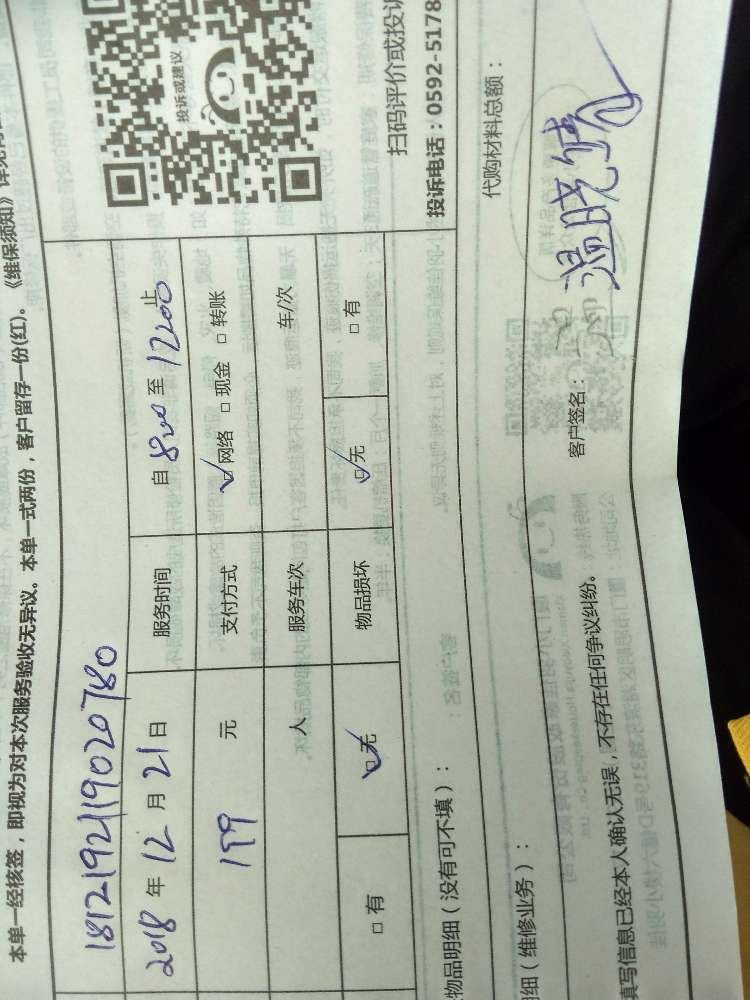 本单一经核签，即视为对本次服务验收无异议。本单一式两份，客户留存一份(红)。《维保须知》详见背
1812192119020780
2018 年 12 月 21 日 服务时间 自 8:00 至 12:00 止
199 元 支付方式 网络 现金 转账
人 服务车次 车/次
有 无 物品损坏 无 有
投诉或建议
扫码评价或投诉
投诉电话：0592-5178
物品明细（没有可不填）：
代购材料总额：
细（维修业务）：
填写信息已经本人确认无误，不存在任何争议纠纷。
客户签名： 温晓